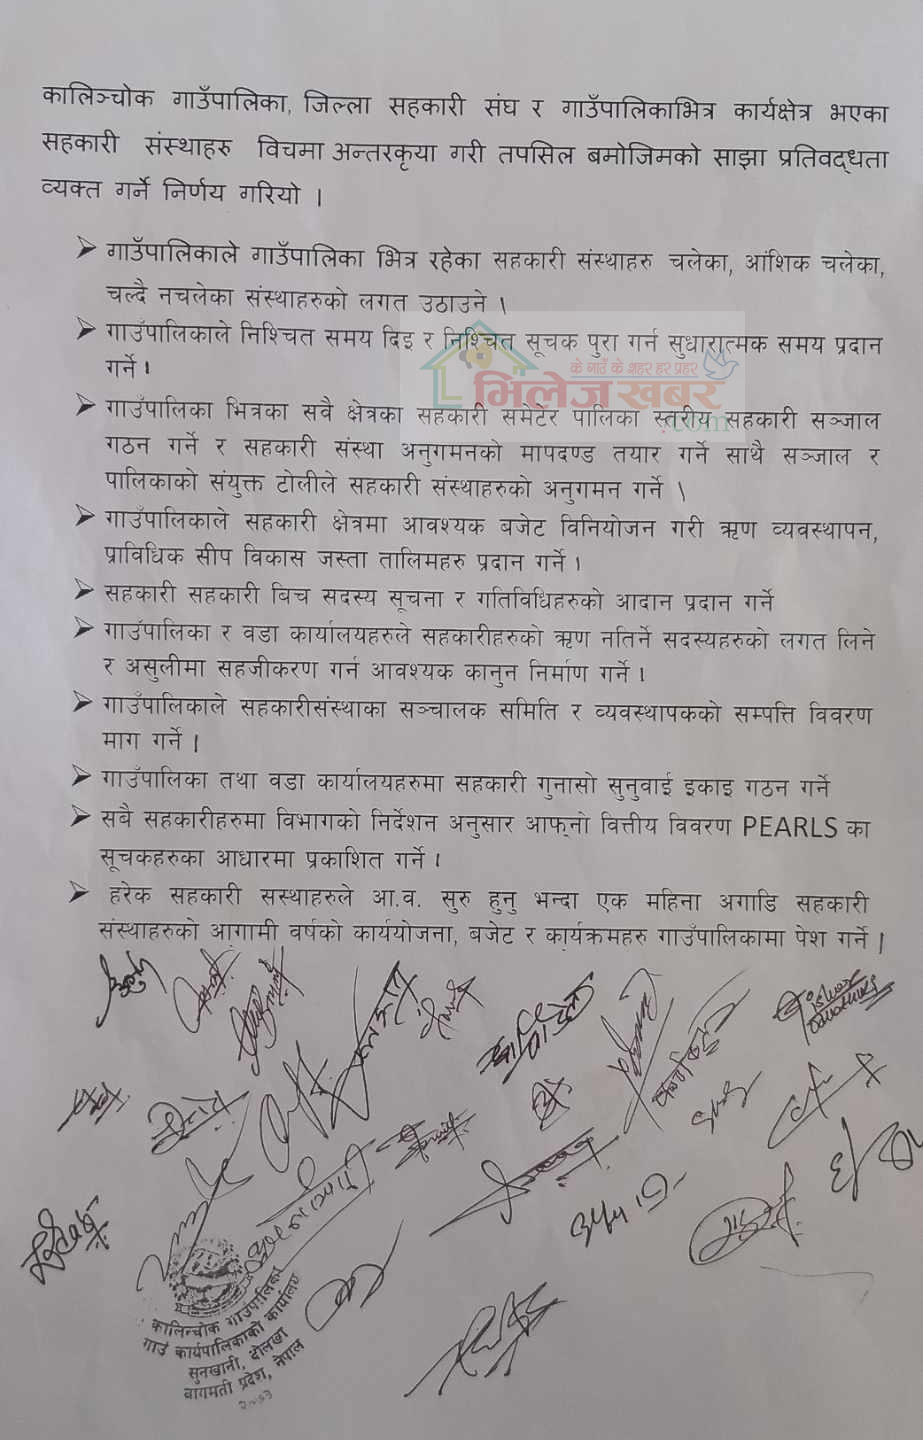 कालिञ्चोक गाउँपालिका, जिल्ला सहकारी संघ र गाउँपालिकाभित्र कार्यक्षेत्र भएका
सहकारी संस्थाहरु विचमा अन्तरकृया गरी तपसिल बमोजिमको साझा प्रतिवद्धता
व्यक्त गर्ने निर्णय गरियो ।
➤ गाउँपालिकाले गाउँपालिका भित्र रहेका सहकारी संस्थाहरु चलेका, आंशिक चलेका,
चल्दै नचलेका संस्थाहरुको लगत उठाउने ।
➤ गाउँपालिकाले निश्चित समय दिइ र निश्चित सूचक पुरा गर्न सुधारात्मक समय प्रदान
गर्ने ।
के गाउँ के शहर हर प्रहर
भिलेज खबर
.com
➤ गाउँपालिका भित्रका सवै क्षेत्रका सहकारी समेटेर पालिका स्तरीय सहकारी सञ्जाल
गठन गर्ने र सहकारी संस्था अनुगमनको मापदण्ड तयार गर्ने साथै सञ्जाल र
पालिकाको संयुक्त टोलीले सहकारी संस्थाहरुको अनुगमन गर्ने ।
➤ गाउँपालिकाले सहकारी क्षेत्रमा आवश्यक बजेट विनियोजन गरी ऋण व्यवस्थापन,
प्राविधिक सीप विकास जस्ता तालिमहरु प्रदान गर्ने ।
➤ सहकारी सहकारी बिच सदस्य सूचना र गतिविधिहरुको आदान प्रदान गर्ने
➤ गाउँपालिका र वडा कार्यालयहरुले सहकारीहरुको ऋण नतिर्ने सदस्यहरुको लगत लिने
र असुलीमा सहजीकरण गर्न आवश्यक कानुन निर्माण गर्ने ।
➤ गाउँपालिकाले सहकारीसंस्थाका सञ्चालक समिति र व्यवस्थापकको सम्पत्ति विवरण
माग गर्ने ।
➤ गाउँपालिका तथा वडा कार्यालयहरुमा सहकारी गुनासो सुनुवाई इकाइ गठन गर्ने
➤ सबै सहकारीहरुमा विभागको निर्देशन अनुसार आफ्नो वित्तीय विवरण PEARLS का
सूचकहरुका आधारमा प्रकाशित गर्ने ।
➤ हरेक सहकारी सस्थाहरुले आ.व. सुरु हुनु भन्दा एक महिना अगाडि सहकारी
संस्थाहरुको आगामी वर्षको कार्ययोजना, बजेट र कार्यक्रमहरु गाउँपालिकामा पेश गर्ने ।
कालिन्चोक गाउँपालिका
गाउँ कार्यपालिकाको कार्यालय
सुनखानी, दोलखा
बागमती प्रदेश, नेपाल